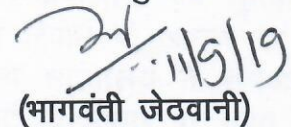 11/9/19
(भागवंती जेठवानी)